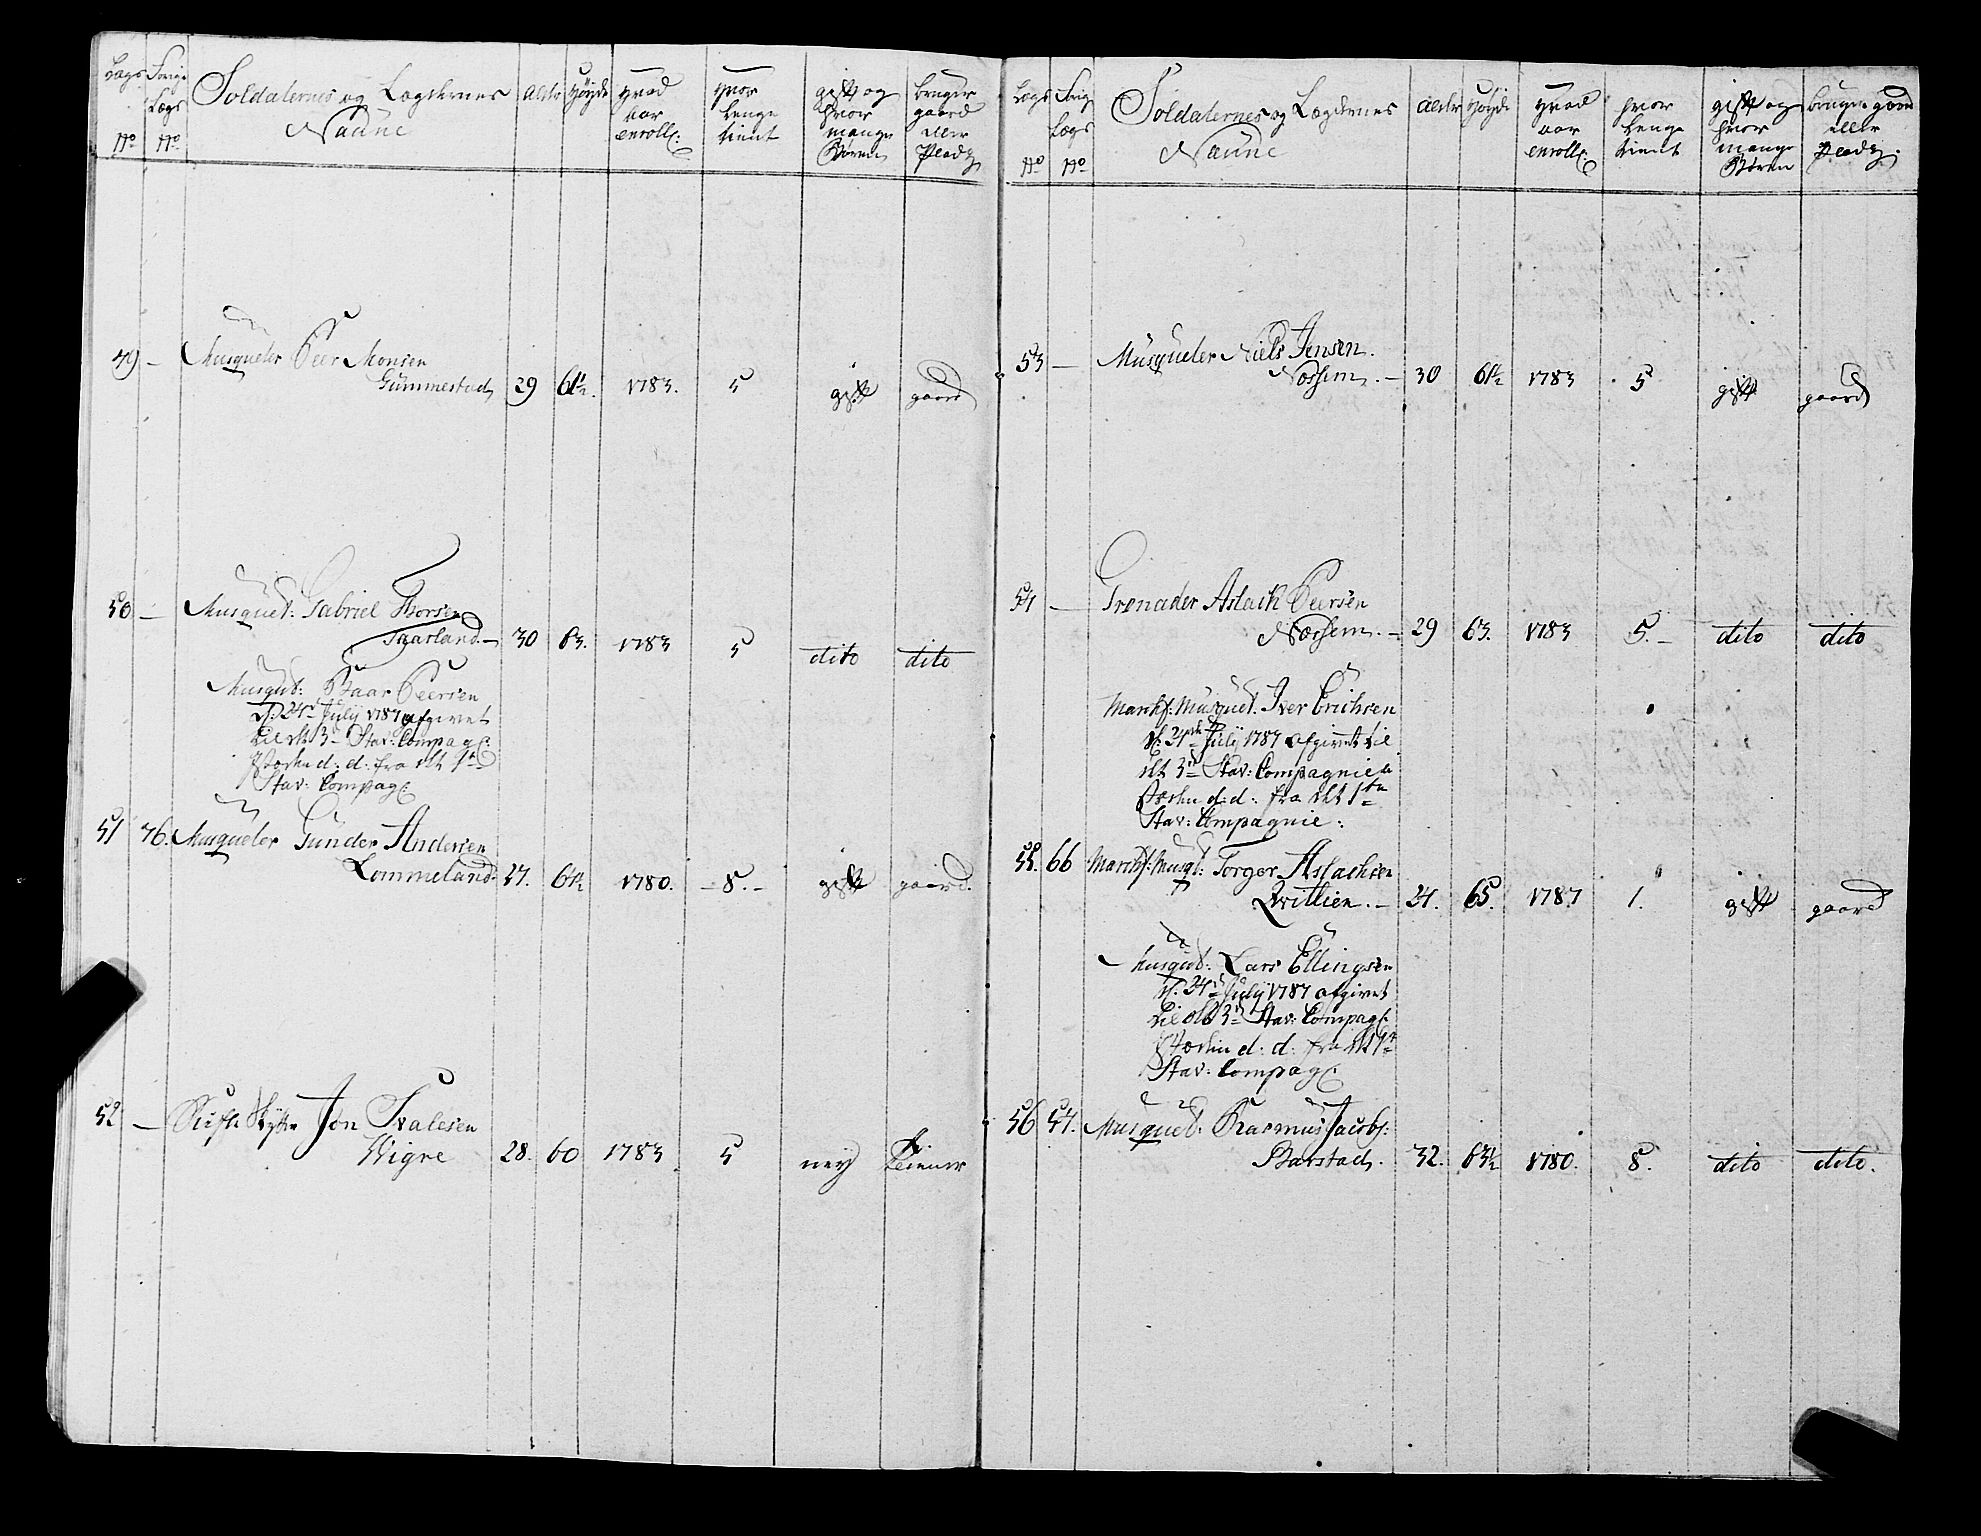 Lægs No
Forige Lægs No
Soldaternes og Lægdernes Naune
Alder
Høyde
Hvad aar enroll:
Hvor lenge tient
gift og hvor mange Børen
bruger gaard eller Pladz
49 – Musqueter Peer Monsen
Gummestad 29 61½. 1783. 5 gift gaard
50 – Musquet: Gabriel Thorsen
Taarland – 30 63. 1783 5 dito dito
Musqut: Baar Peersen
d: 24de July 1787 afgivet
til dt 3die Stav: Compag:
d: d: fra dt 1te
Stav: Compag:
51 76. Musqueter Gunder Andersen
Lommeland. 27. 61½ 1780. – 8. – gift gaard.
52 – Jon Tvalesen
Wigre 28. 60 1783 5 ney tiener
Lægs No
Forig Lægs No
Soldaternes og Lægdernes Naune
Alder
Høyde
Hvad aar enroll:
hvor lenge tient
gift og hvor mange Børen
bruger gaard eller Pladz.
53 – Musqueter Niels Jensen.
Nossem. – 30 61½ 1783 5 gift gaard
54 – Grenader Aslach Peersen
Nossem. – 29 63. 1783 5. – dito dito
Marchf: Musquet. Iver Erichsen
d: 24de July 1787 afgivet til
dt 3die Stav: Compagnie
d: d: fra dt 1te
Stav: Compagnie:
55. 66 Marchf: Musqt: Torger Aslachsen
Qvittien. – 24. 65. 1787 1. gift gaard
Musqut: Lars Ellingsen
d: 24de July 1787 afgivet
til dt 3die Stav: Compag:
d: d: fra dt 1te
Stav: Compag:
56 57. Musquet. Rasmus Jacobs:
Barstad. 32. 63½ 1780. 8. dito dito.